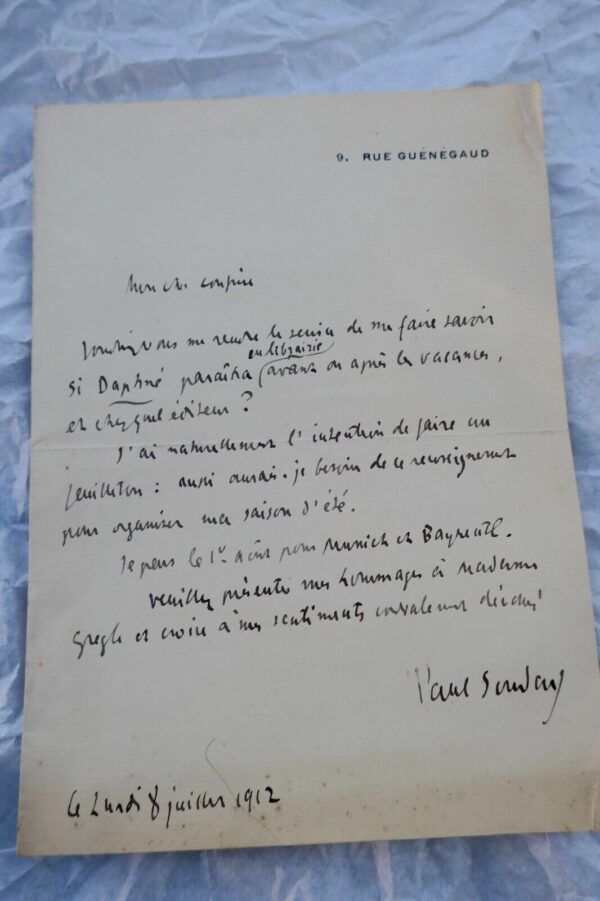 9, RUE GUÉNÉGAUD
Mon cher confrère
Voudriez-vous me rendre le service de me faire savoir
si Daphné paraîtra en librairie avant ou après les vacances,
et chez quel éditeur ?
J'ai naturellement l'intention de faire un
feuilleton : aussi aurais-je besoin de ce renseignement
pour organiser ma saison d'été.
Je pars le 1er août pour Munich et Bayreuth.
Veuillez présenter mes hommages à Madame
Gregh et croire à mes sentiments cordialement dévoués
Paul Souday
le Lundi 8 juillet 1912